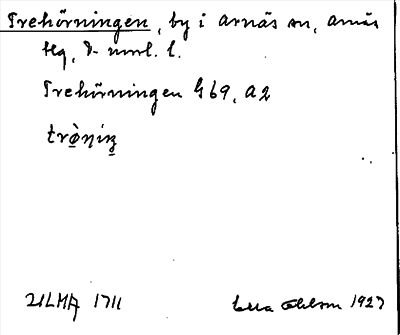 Trehörningen, by i Arnäs sn, Arnäs
tlg, V-nrrl. l.
Trehörningen G69, A2
ULMA 1711
Ella Ohlson 1927